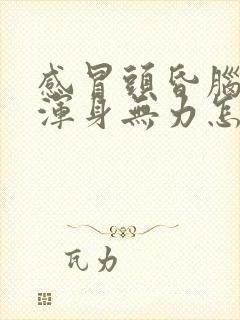 感冒頭昏腦
渾身無力怎
瓦力